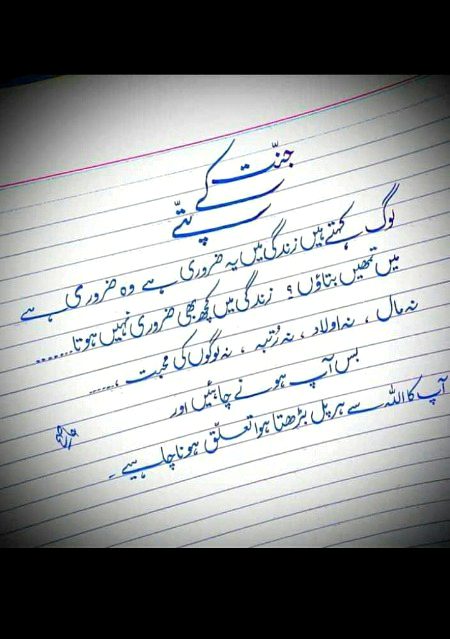 جنّت
کے
پتّے
لوگ کہتے ہیں زندگی میں یہ ضروری ہے وہ ضروری ہے
میں تمھیں بتاؤں؟ زندگی میں کچھ بھی ضروری نہیں ہوتا.......
نہ مال، نہ اولاد، نہ رُتبہ، نہ لوگوں کی محبت،......
بس آپ ہونے چاہئیں اور
آپ کا اللہ سے ہر پل بڑھتا ہوا تعلّق ہونا چاہیے۔